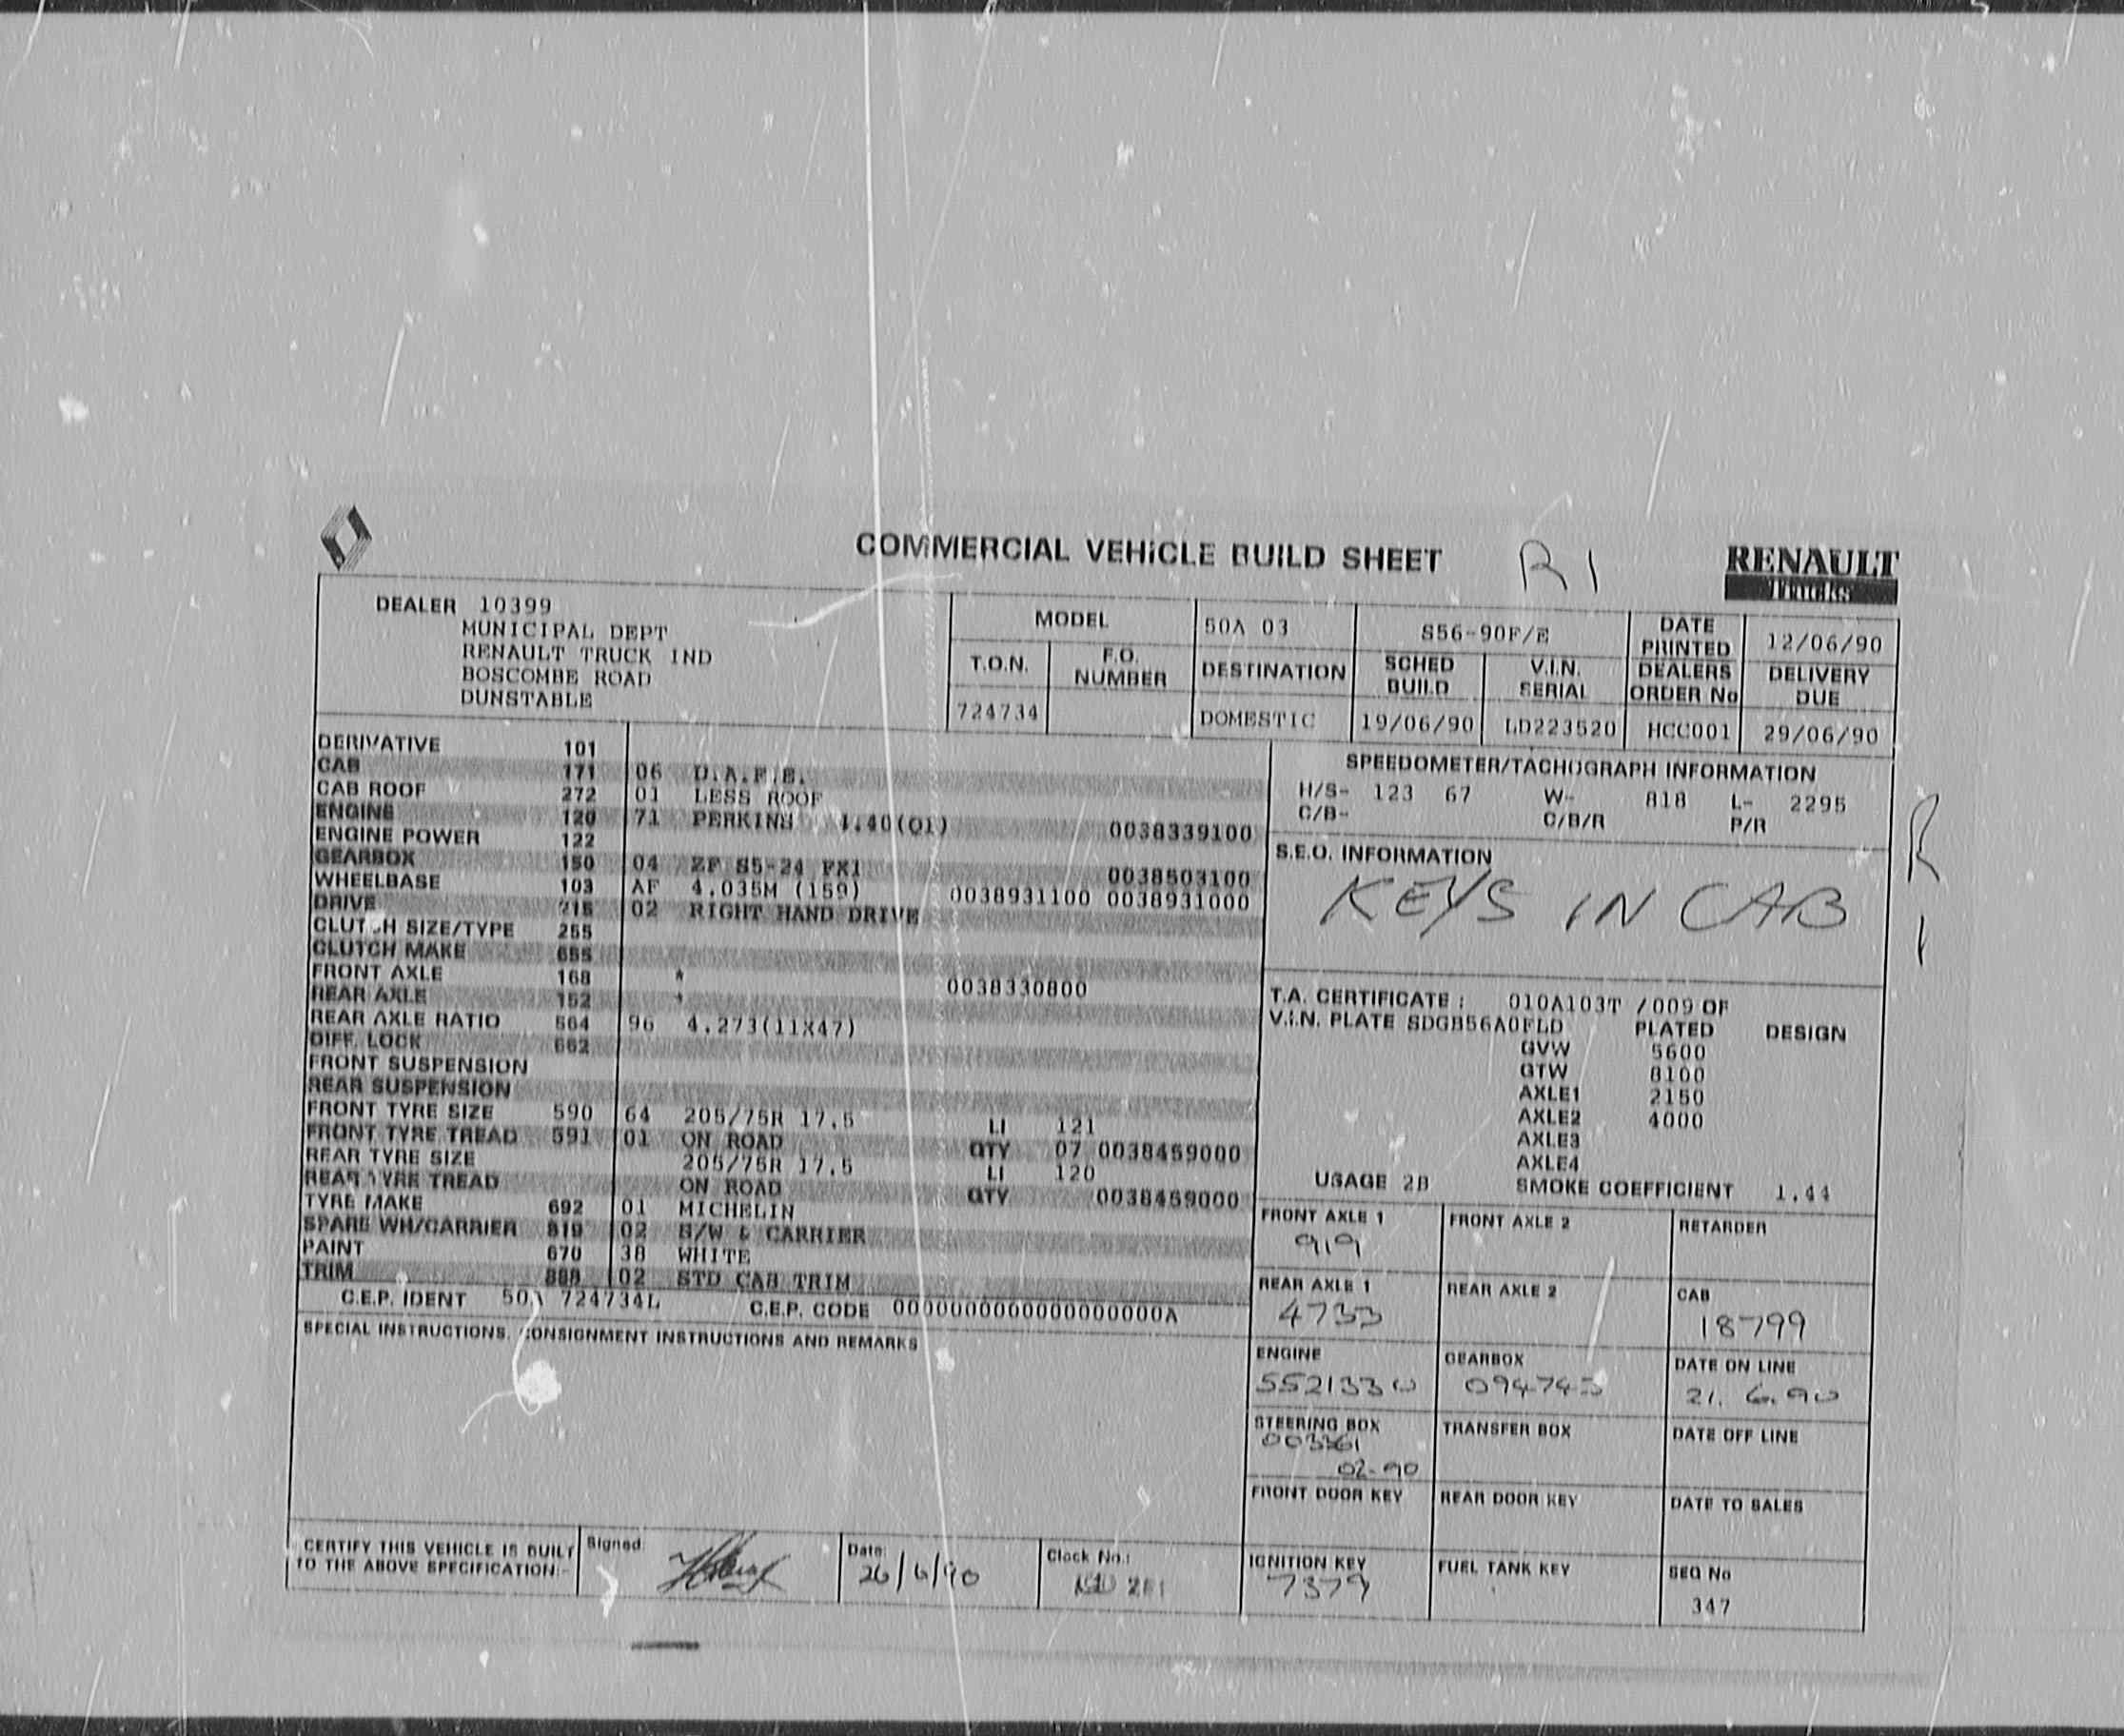 COMMERCIAL VEHICLE BUILD SHEET R1
RENAULT
Trucks
DEALER 10399
MUNICIPAL DEPT
RENAULT TRUCK IND
BOSCOMBE ROAD
DUNSTABLE
MODEL 50A 03 S56-90F/E DATE PRINTED 12/06/90
T.O.N. F.O. NUMBER DESTINATION SCHED BUILD V.I.N. SERIAL DEALERS ORDER No DELIVERY DUE
724734 DOMESTIC 19/06/90 LD223520 HCC001 29/06/90
DERIVATIVE 101
CAB 171 06 D.A.F.E.
CAB ROOF 272 01 LESS ROOF
ENGINE 120 71 PERKINS 4.40(01) 0038339100
ENGINE POWER 122
GEARBOX 150 04 ZF S5-24 FX1 0038503100
WHEELBASE 103 AF 4.035M (159) 0038931100 0038931000
DRIVE 215 02 RIGHT HAND DRIVE
CLUTCH SIZE/TYPE 255
CLUTCH MAKE 655
FRONT AXLE 168 *
REAR AXLE 152 * 0038330800
REAR AXLE RATIO 564 96 4.273(11X47)
DIFF. LOCK 662
FRONT SUSPENSION
REAR SUSPENSION
FRONT TYRE SIZE 590 64 205/75R 17.5 LI 121
FRONT TYRE TREAD 591 01 ON ROAD QTY 07 0038459000
REAR TYRE SIZE 205/75R 17.5 LI 120
REAR TYRE TREAD ON ROAD QTY 0038459000
TYRE MAKE 692 01 MICHELIN
SPARE WH/CARRIER 819 02 S/W & CARRIER
PAINT 670 38 WHITE
TRIM 888 02 STD CAB TRIM
C.E.P. IDENT 50A 724734L C.E.P. CODE 00000000000000000000A
SPECIAL INSTRUCTIONS, CONSIGNMENT INSTRUCTIONS AND REMARKS
SPEEDOMETER/TACHOGRAPH INFORMATION
H/S- 123 67 W- 818 L- 2295
C/B- C/B/R P/R
R1
S.E.O. INFORMATION
KEYS IN CAB
T.A. CERTIFICATE : 010A103T /009 OF
V.I.N. PLATE SDGB56A0FLD PLATED DESIGN
GVW 5600
GTW 8100
AXLE1 2150
AXLE2 4000
AXLE3
AXLE4
USAGE 2B SMOKE COEFFICIENT 1.44
FRONT AXLE 1 FRONT AXLE 2 RETARDER
919
REAR AXLE 1 REAR AXLE 2 CAB
4733 18799
ENGINE GEARBOX DATE ON LINE
5521330 094743 21. 6.90
STEERING BOX TRANSFER BOX DATE OFF LINE
003361
02-90
FRONT DOOR KEY REAR DOOR KEY DATE TO SALES
IGNITION KEY FUEL TANK KEY SEQ No
7379 347
CERTIFY THIS VEHICLE IS BUILT
TO THE ABOVE SPECIFICATION:-
Signed:
Date: 26/6/90
Clock No.: